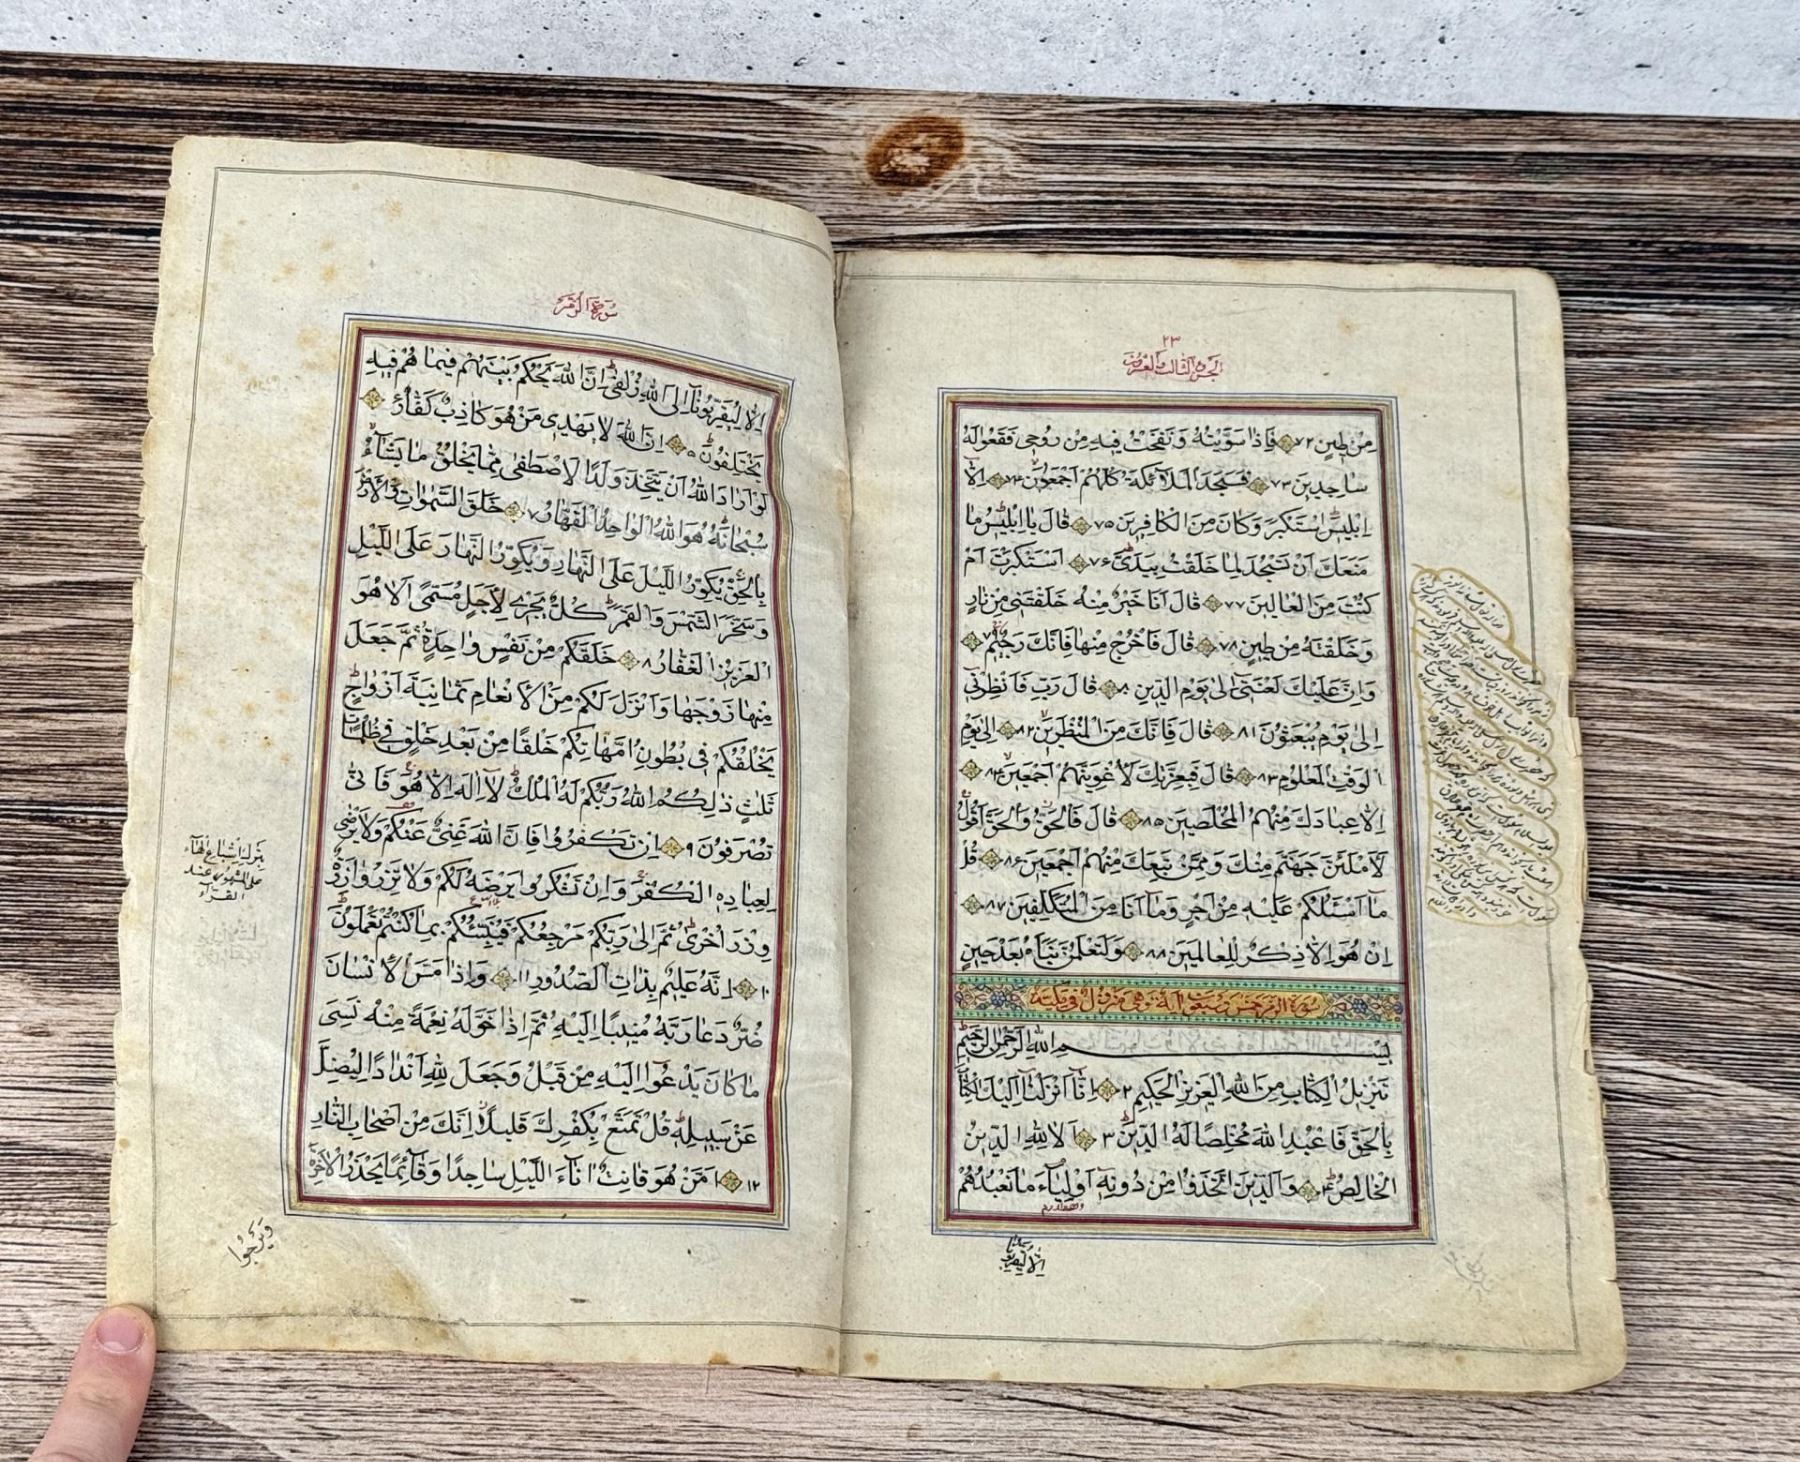 ٢٣
الجزء الثالث والعشرون
مِنْ طِينٍ ٧٢ فَاِذَا سَوَّيْتُهُ وَنَفَخْتُ فِيهِ مِنْ رُوحِى فَقَعُوا لَهُ
سَاجِدِينَ ٧٣ فَسَجَدَ الْمَلَآئِكَةُ كُلُّهُمْ اَجْمَعُونَ ٧٤ اِلَّا
اِبْلِيسَ اسْتَكْبَرَ وَكَانَ مِنَ الْكَافِرِينَ ٧٥ قَالَ يَا اِبْلِيسُ مَا
مَنَعَكَ اَنْ تَسْجُدَ لِمَا خَلَقْتُ بِيَدَىَّ ٧۶ اَسْتَكْبَرْتَ اَمْ
كُنْتَ مِنَ الْعَالِينَ ٧٧ قَالَ اَنَا خَيْرٌ مِنْهُ خَلَقْتَنِى مِنْ نَارٍ
وَخَلَقْتَهُ مِنْ طِينٍ ٧٨ قَالَ فَاخْرُجْ مِنْهَا فَاِنَّكَ رَجِيمٌ ٧٩
وَاِنَّ عَلَيْكَ لَعْنَتِى اِلٰى يَوْمِ الدِّينِ ٨٠ قَالَ رَبِّ فَاَنْظِرْنِى
اِلٰى يَوْمِ يُبْعَثُونَ ٨١ قَالَ فَاِنَّكَ مِنَ الْمُنْظَرِينَ ٨٢ اِلٰى يَوْمِ
الْوَقْتِ الْمَعْلُومِ ٨٣ قَالَ فَبِعِزَّتِكَ لَاُغْوِيَنَّهُمْ اَجْمَعِينَ ٨٤
اِلَّا عِبَادَكَ مِنْهُمُ الْمُخْلَصِينَ ٨٥ قَالَ فَالْحَقُّ وَالْحَقَّ اَقُولُ
لَاَمْلَئَنَّ جَهَنَّمَ مِنْكَ وَمِمَّنْ تَبِعَكَ مِنْهُمْ اَجْمَعِينَ ٨۶ قُلْ
مَا اَسْئَلُكُمْ عَلَيْهِ مِنْ اَجْرٍ وَمَا اَنَا مِنَ الْمُتَكَلِّفِينَ ٨٧
اِنْ هُوَ اِلَّا ذِكْرٌ لِلْعَالَمِينَ ٨٨ وَلَتَعْلَمُنَّ نَبَاَهُ بَعْدَ حِينٍ
سورة الزمر خمس وسبعون آية وهى
بِسْمِ اللهِ الرَّحْمٰنِ الرَّحِيمِ
تَنْزِيلُ الْكِتَابِ مِنَ اللهِ الْعَزِيزِ الْحَكِيمِ ٢ اِنَّا اَنْزَلْنَا اِلَيْكَ الْكِتَابَ
بِالْحَقِّ فَاعْبُدِ اللهَ مُخْلِصًا لَهُ الدِّينَ ٣ اَلَا لِلّٰهِ الدِّينُ
الْخَالِصُ ٤ وَالَّذِينَ اتَّخَذُوا مِنْ دُونِهِ اَوْلِيَآءَ مَا نَعْبُدُهُمْ
اِلَّا لِيُقَرِّبُونَا
سورة الزمر
اِلَّا لِيُقَرِّبُونَا اِلَى اللهِ زُلْفٰى اِنَّ اللهَ يَحْكُمُ بَيْنَهُمْ فِيمَا هُمْ فِيهِ
يَخْتَلِفُونَ ٥ اِنَّ اللهَ لَا يَهْدِى مَنْ هُوَ كَاذِبٌ كَفَّارٌ
لَوْ اَرَادَ اللهُ اَنْ يَتَّخِذَ وَلَدًا لَاصْطَفٰى مِمَّا يَخْلُقُ مَا يَشَآءُ
سُبْحَانَهُ هُوَ اللهُ الْوَاحِدُ الْقَهَّارُ ٧ خَلَقَ السَّمٰوَاتِ وَالْاَرْضَ
بِالْحَقِّ يُكَوِّرُ اللَّيْلَ عَلَى النَّهَارِ وَيُكَوِّرُ النَّهَارَ عَلَى اللَّيْلِ
وَسَخَّرَ الشَّمْسَ وَالْقَمَرَ كُلٌّ يَجْرِى لِاَجَلٍ مُسَمًّى اَلَا هُوَ
الْعَزِيزُ الْغَفَّارُ ٨ خَلَقَكُمْ مِنْ نَفْسٍ وَاحِدَةٍ ثُمَّ جَعَلَ
مِنْهَا زَوْجَهَا وَاَنْزَلَ لَكُمْ مِنَ الْاَنْعَامِ ثَمَانِيَةَ اَزْوَاجٍ
يَخْلُقُكُمْ فِى بُطُونِ اُمَّهَاتِكُمْ خَلْقًا مِنْ بَعْدِ خَلْقٍ فِى ظُلُمَاتٍ
ثَلٰثٍ ذٰلِكُمُ اللهُ رَبُّكُمْ لَهُ الْمُلْكُ لَا اِلٰهَ اِلَّا هُوَ فَاَنّٰى
تُصْرَفُونَ ٩ اِنْ تَكْفُرُوا فَاِنَّ اللهَ غَنِىٌّ عَنْكُمْ وَلَا يَرْضٰى
لِعِبَادِهِ الْكُفْرَ وَاِنْ تَشْكُرُوا يَرْضَهُ لَكُمْ وَلَا تَزِرُ وَازِرَةٌ
وِزْرَ اُخْرٰى ثُمَّ اِلٰى رَبِّكُمْ مَرْجِعُكُمْ فَيُنَبِّئُكُمْ بِمَا كُنْتُمْ تَعْمَلُونَ
١٠ اِنَّهُ عَلِيمٌ بِذَاتِ الصُّدُورِ ١١ وَاِذَا مَسَّ الْاِنْسَانَ
ضُرٌّ دَعَا رَبَّهُ مُنِيبًا اِلَيْهِ ثُمَّ اِذَا خَوَّلَهُ نِعْمَةً مِنْهُ نَسِىَ
مَا كَانَ يَدْعُوا اِلَيْهِ مِنْ قَبْلُ وَجَعَلَ لِلّٰهِ اَنْدَادًا لِيُضِلَّ
عَنْ سَبِيلِهِ قُلْ تَمَتَّعْ بِكُفْرِكَ قَلِيلًا اِنَّكَ مِنْ اَصْحَابِ النَّارِ
١٢ اَمَّنْ هُوَ قَانِتٌ اٰنَآءَ اللَّيْلِ سَاجِدًا وَقَآئِمًا يَحْذَرُ الْاٰخِرَةَ
بترك اشباع الهاء
على المشهور عند
القراء
وَيَرْجُوا